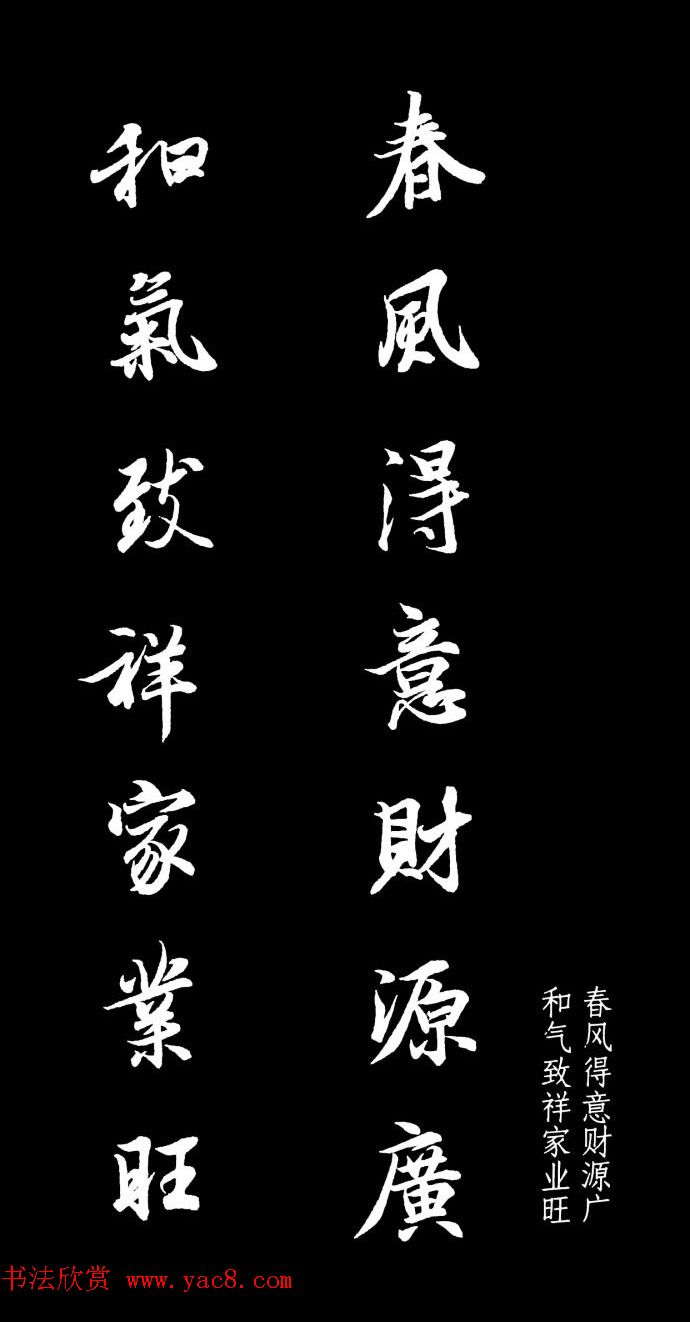 春風得意財源廣
和氣致祥家業旺
春风得意财源广
和气致祥家业旺
书法欣赏 www.yac8.com